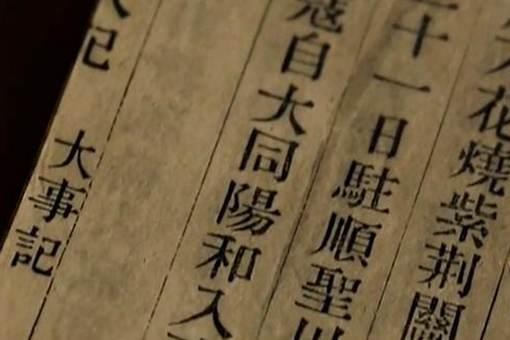 花燒紫荆關
二十一日駐順聖川
寇自大同陽和入
記 大事記